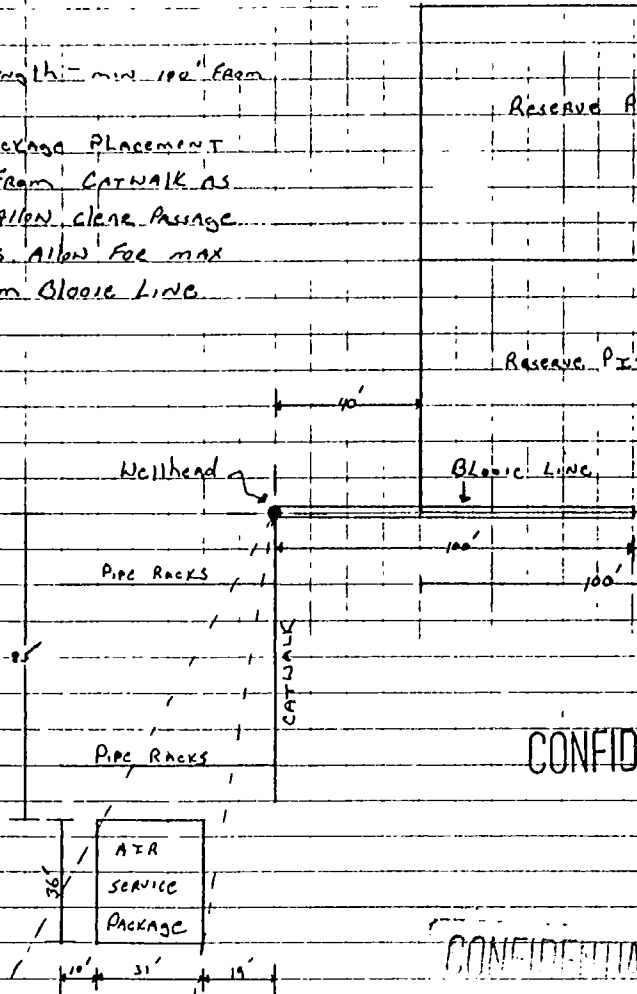 min 100' From
Reserve
Package Placement
From Catwalk as
Allow clear Passage
Allow For max
Blooie Line
Reserve
40'
Wellhead
Blooie Line
100'
Pipe Racks
100'
85'
CATWALK
Pipe Racks
CONFID
AIR
SERVICE
PACKAGE
36'
CONFIDENTIA
10'
31'
19'